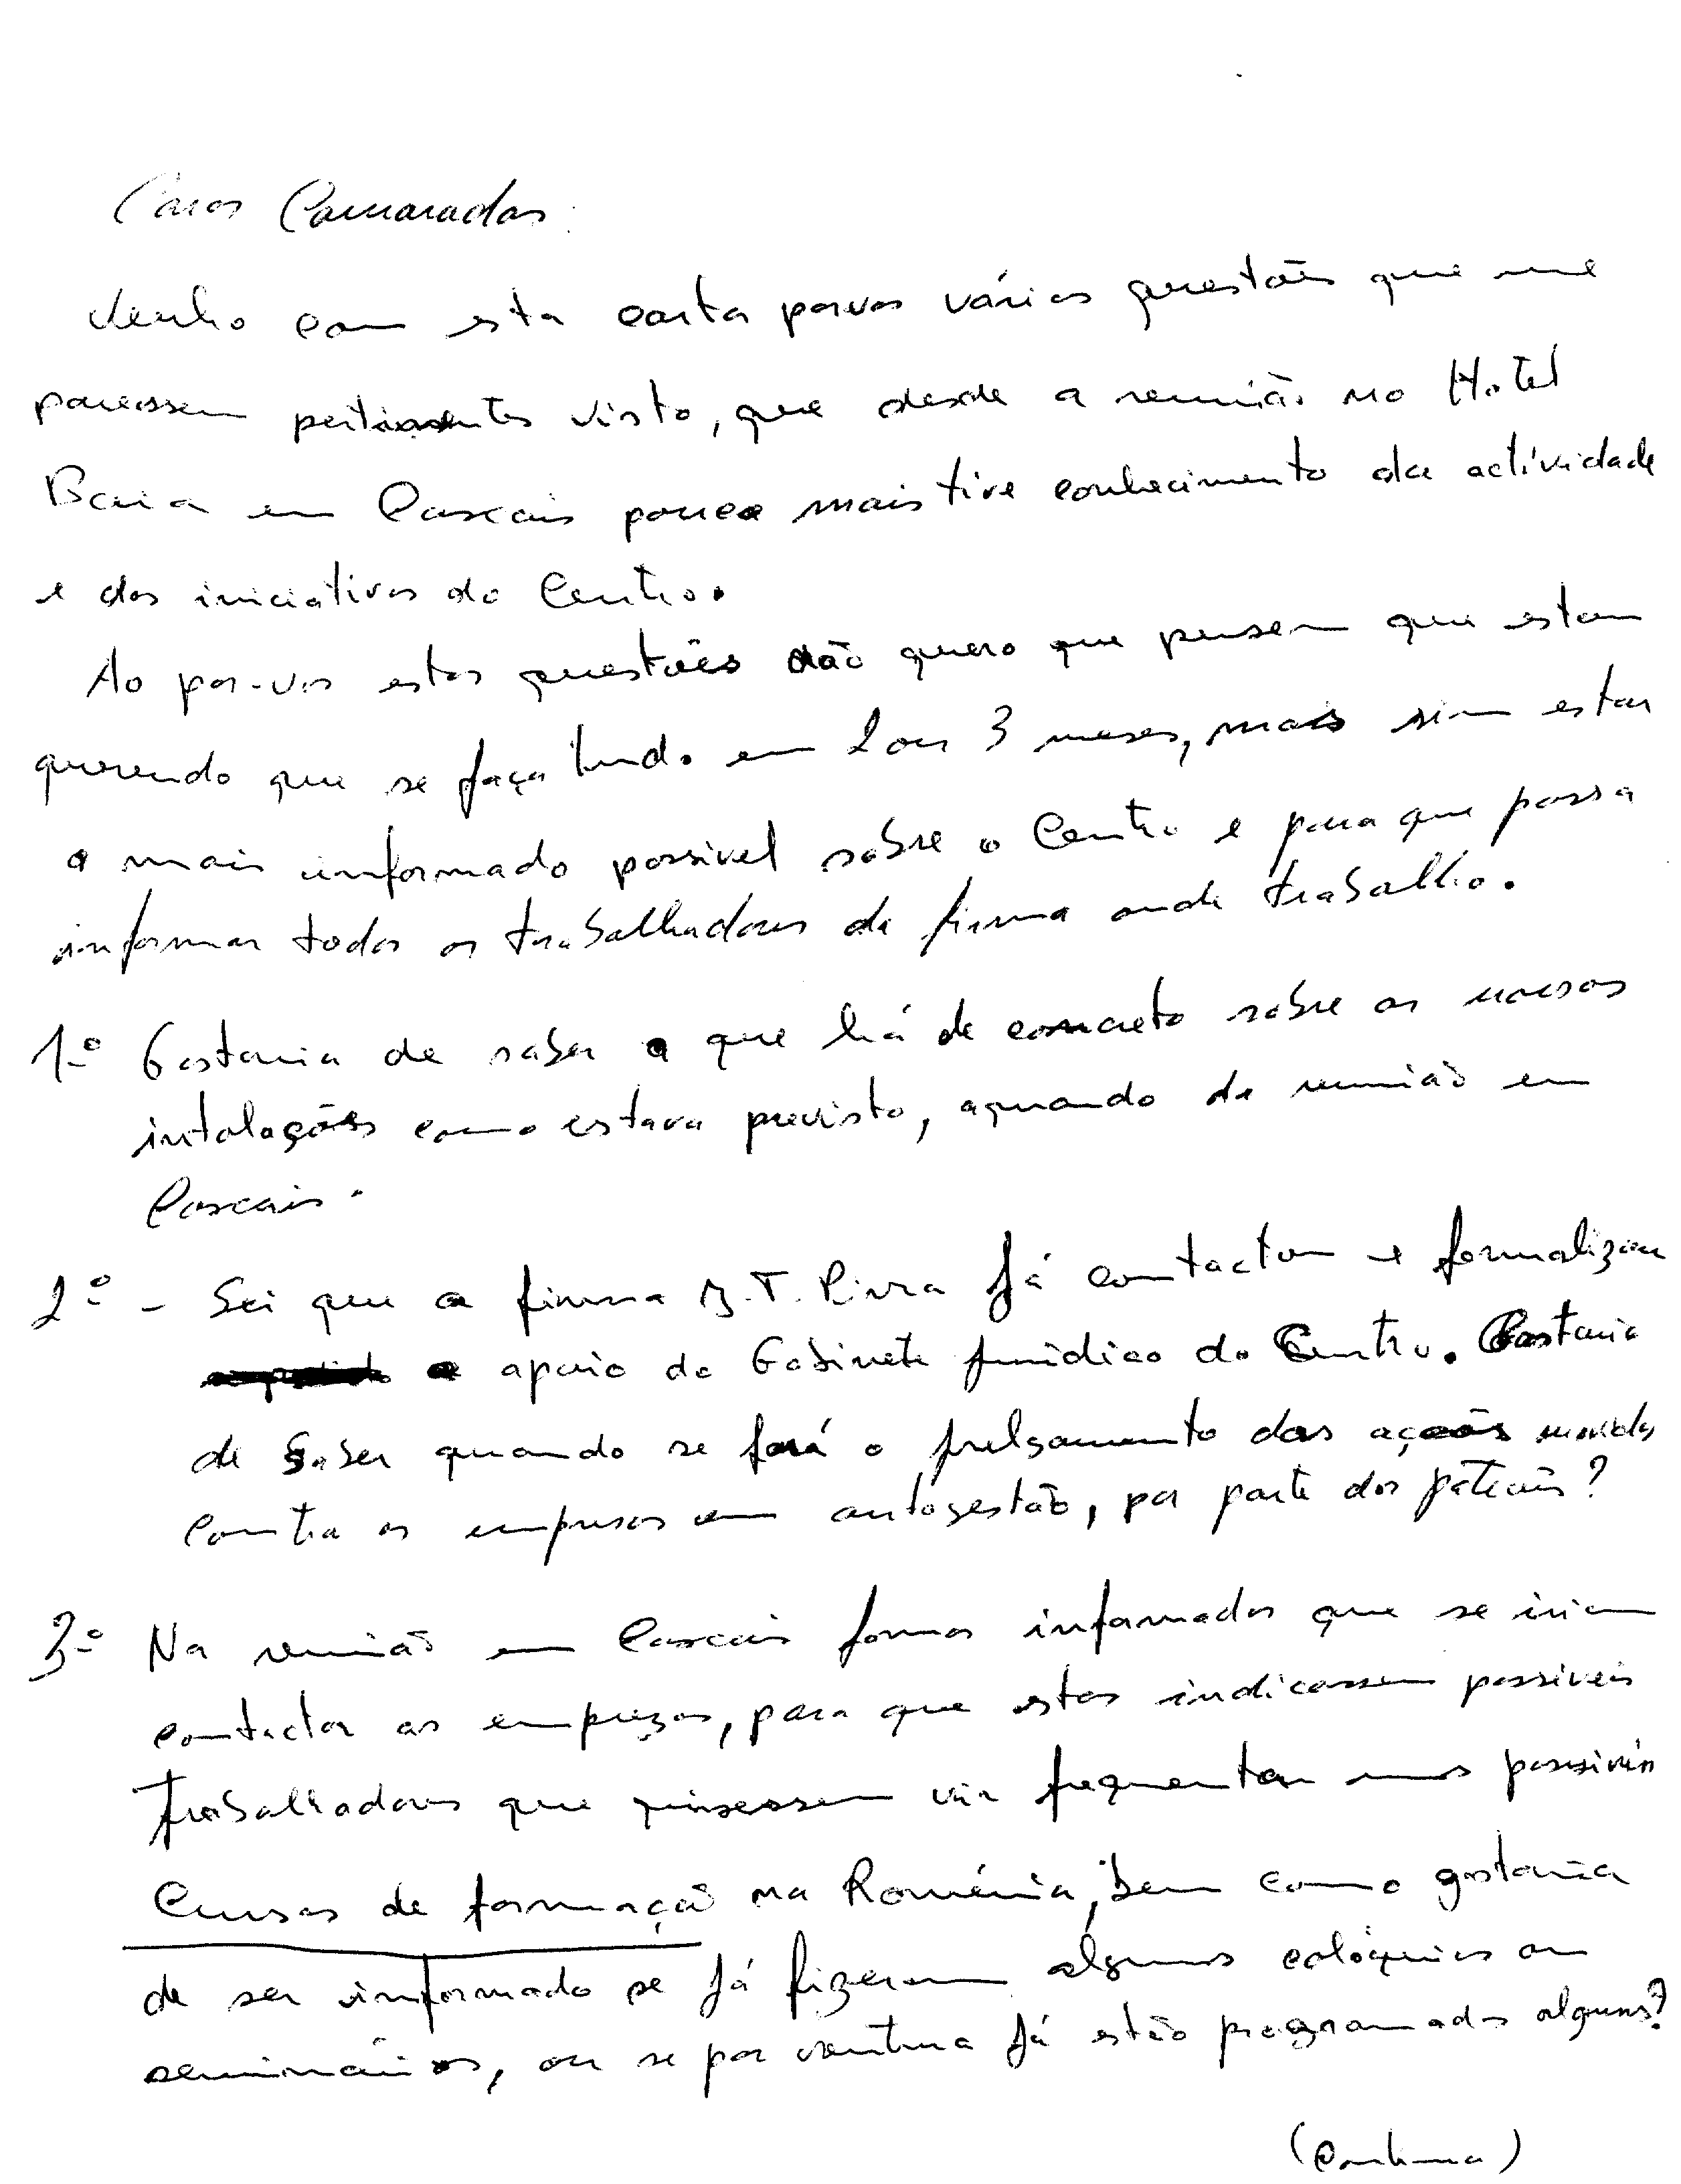 Caros Camaradas:
Venho com esta carta por vos várias questões que me
parecem pertinentes visto, que desde a reunião no Hotel
Baia em Cascais pouco mais tive conhecimento da actividade
e das iniciativas do Centro.
Ao por-vos estas questões não quero que pensem que estou
querendo que se faça tudo em 2 ou 3 meses, mas sim estar
o mais informado possivel sobre o Centro e para que possa
informar todos os trabalhadores da firma onde trabalho.
1.º Gostaria de saber o que há de concreto sobre as novas
intalações como estava previsto, aquando da reunião em
Cascais.
2.º - Sei que a firma já contactou e formalizou
o apoio do Gabinete juridico do Centro. Gostaria
de saber quando se fará o julgamento das acções movidas
contra as empresas em autogestão, por parte dos patrões?
3.º Na reunião em Cascais fomos informados que se iriam
contactar as emprezas, para que estas indicassem possiveis
Trabalhadores que quisessem vir frequentar uns possiveis
Cursos de formação na Roménia, bem como gostaria
de ser informado se já fizeram alguns colóquios ou
seminários, ou se por ventura já estão programados alguns?
(Continua)